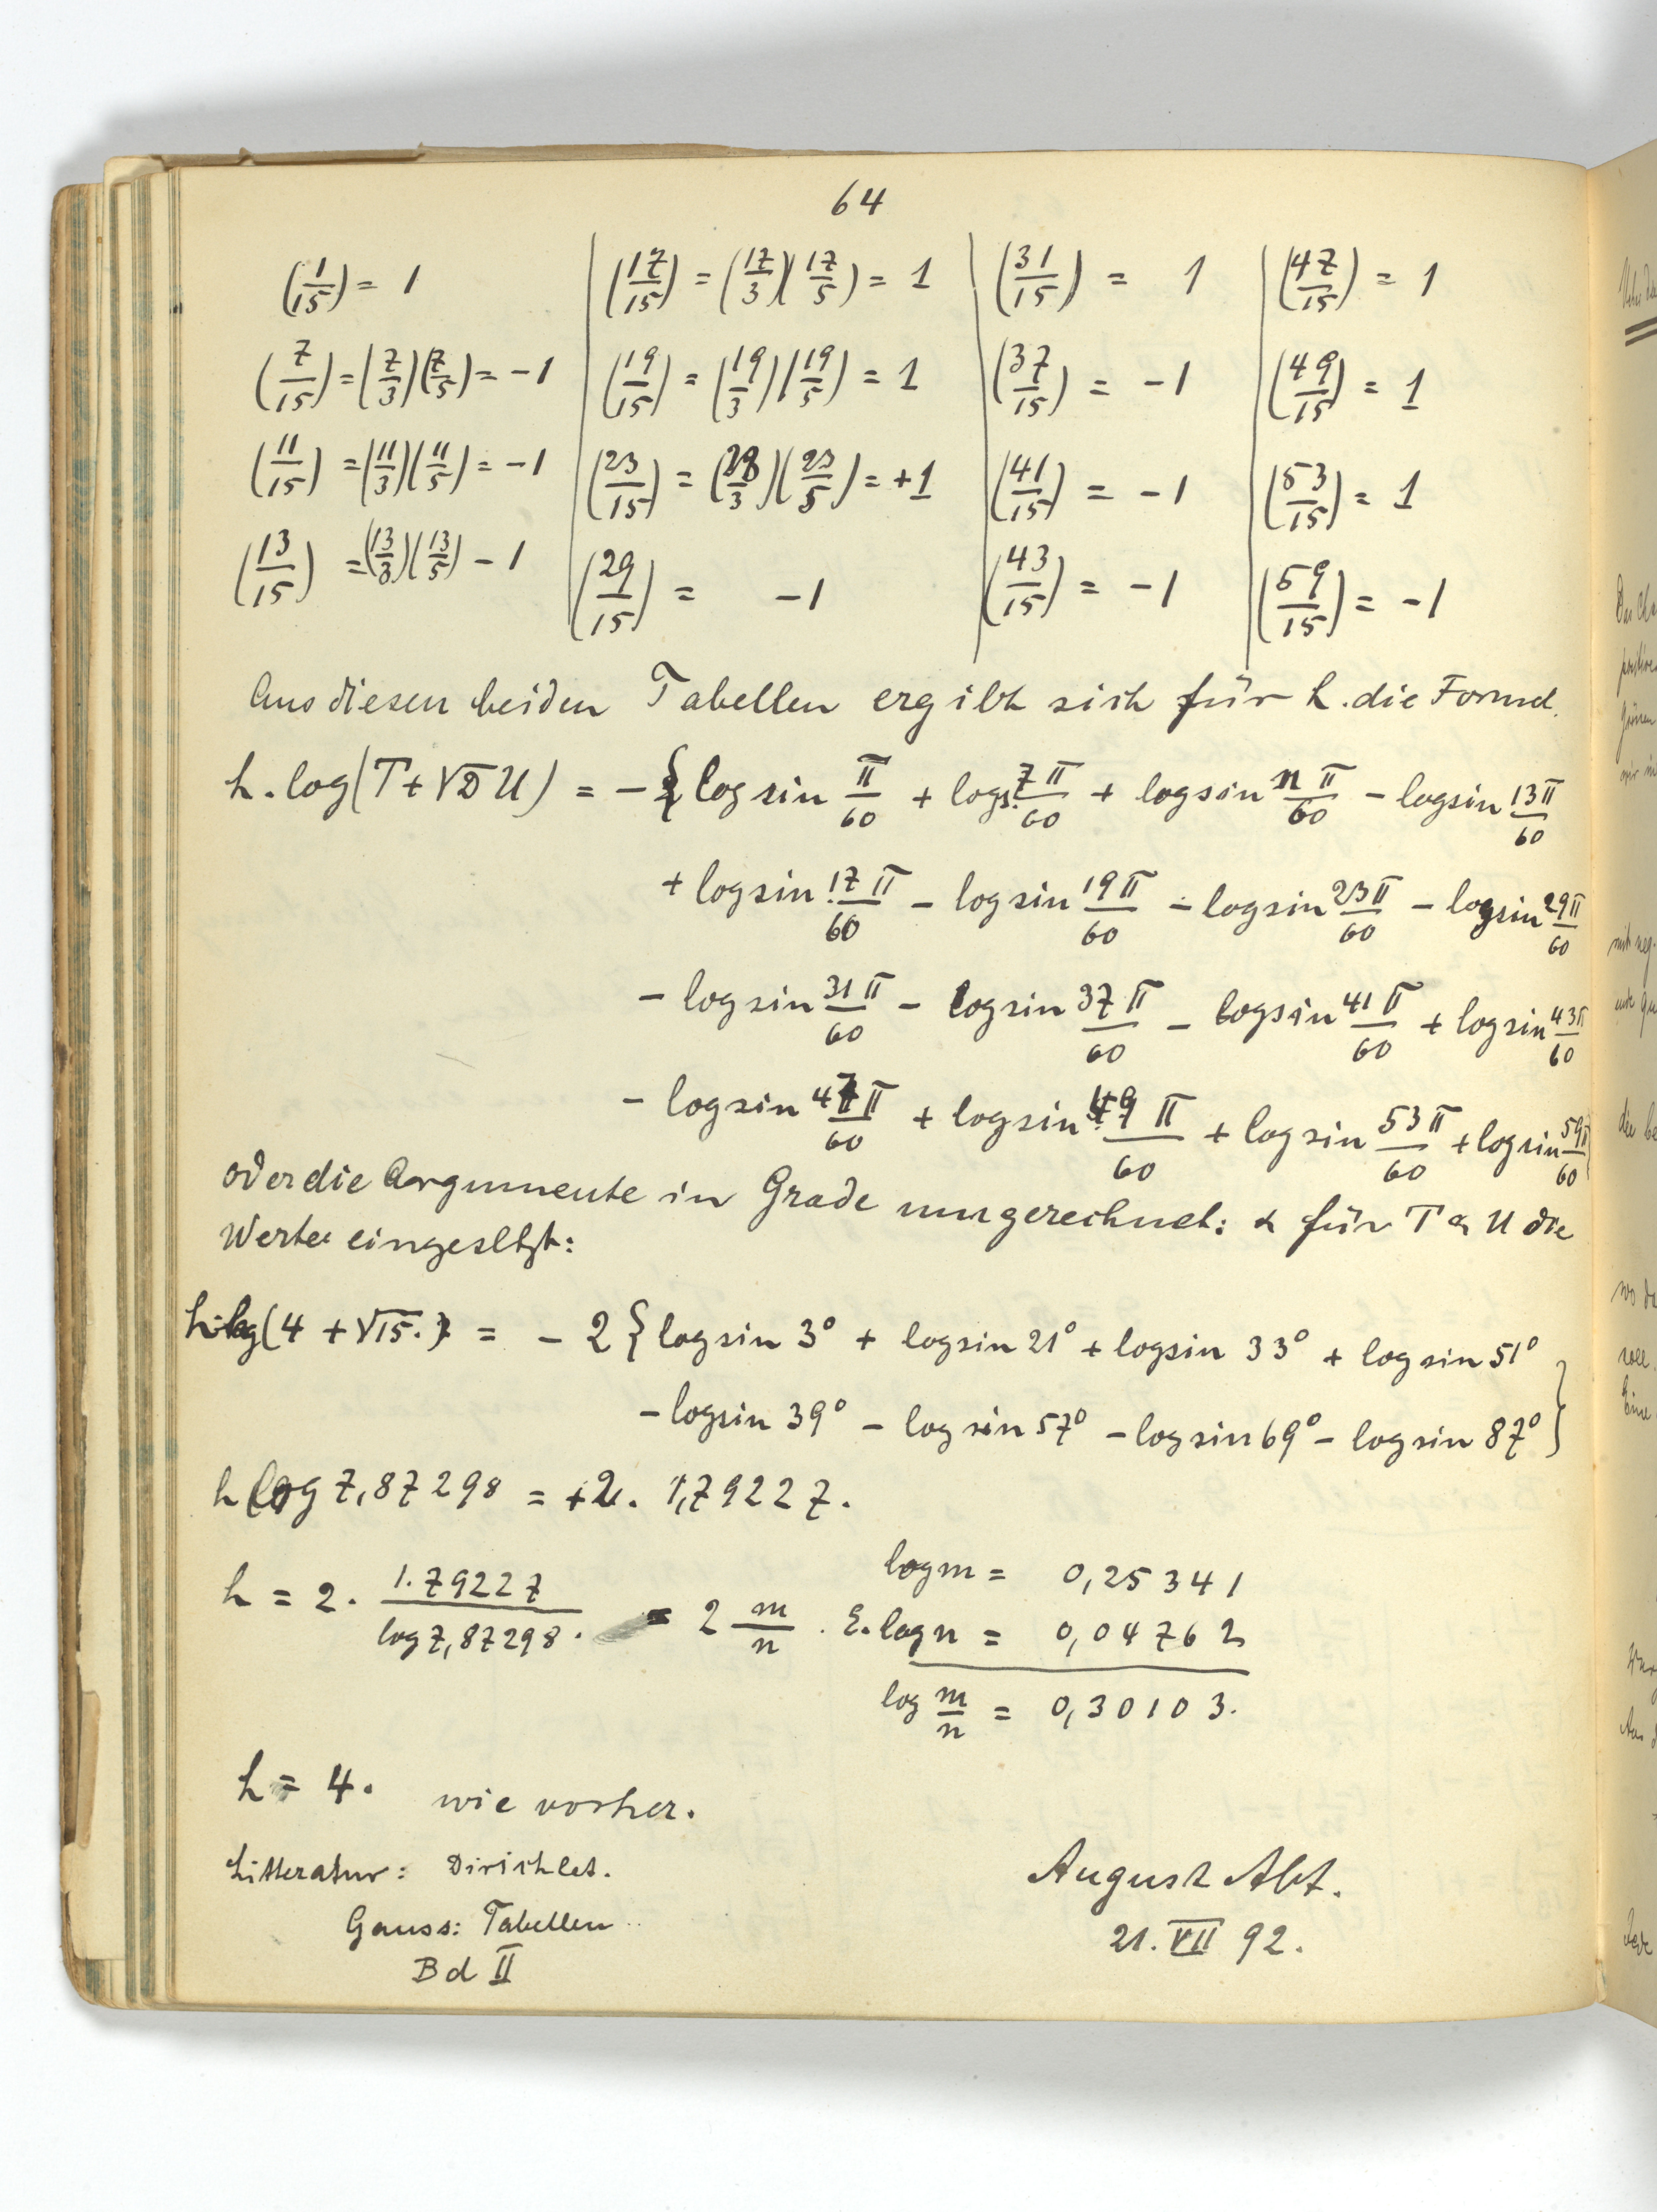 64
(1/15) = 1 | (17/15) = (17/3)(17/5) = 1 | (31/15) = 1 | (47/15) = 1
(7/15) = (7/3)(7/5) = -1 | (19/15) = (19/3)(19/5) = 1 | (37/15) = -1 | (49/15) = 1
(11/15) = (11/3)(11/5) = -1 | (23/15) = (23/3)(23/5) = +1 | (41/15) = -1 | (53/15) = 1
(13/15) = (13/3)(13/5) - 1 | (29/15) = -1 | (43/15) = -1 | (59/15) = -1
Aus diesen beiden Tabellen ergibt sich für h. die Formel.
h. log(T + √D U) = - { log sin π/60 + log s. 7π/60 + log sin 11π/60 - log sin 13π/60
+ log sin 17π/60 - log sin 19π/60 - log sin 23π/60 - log sin 29π/60
- log sin 31π/60 - log sin 37π/60 - log sin 41π/60 + log sin 43π/60
- log sin 47π/60 + log sin 49π/60 + log sin 53π/60 + log sin 59π/60 }
oder die Argumente in Grade umgerechnet: & für T & U die
Werte eingesetzt:
h·log(4 + √15.) = - 2 { log sin 3° + log sin 21° + log sin 33° + log sin 51°
- log sin 39° - log sin 57° - log sin 69° - log sin 87° }
h log 7,87298 = +2. 1,79227.
h = 2. 1.79227 / log 7,87298. = 2 m/n . log m = 0,25341
E. log n = 0,04762
log m/n = 0,30103.
h = 4. wie vorher.
Litteratur: Dirichlet.
Gauss: Tabellen
Bd II
August Abt.
21. VII 92.